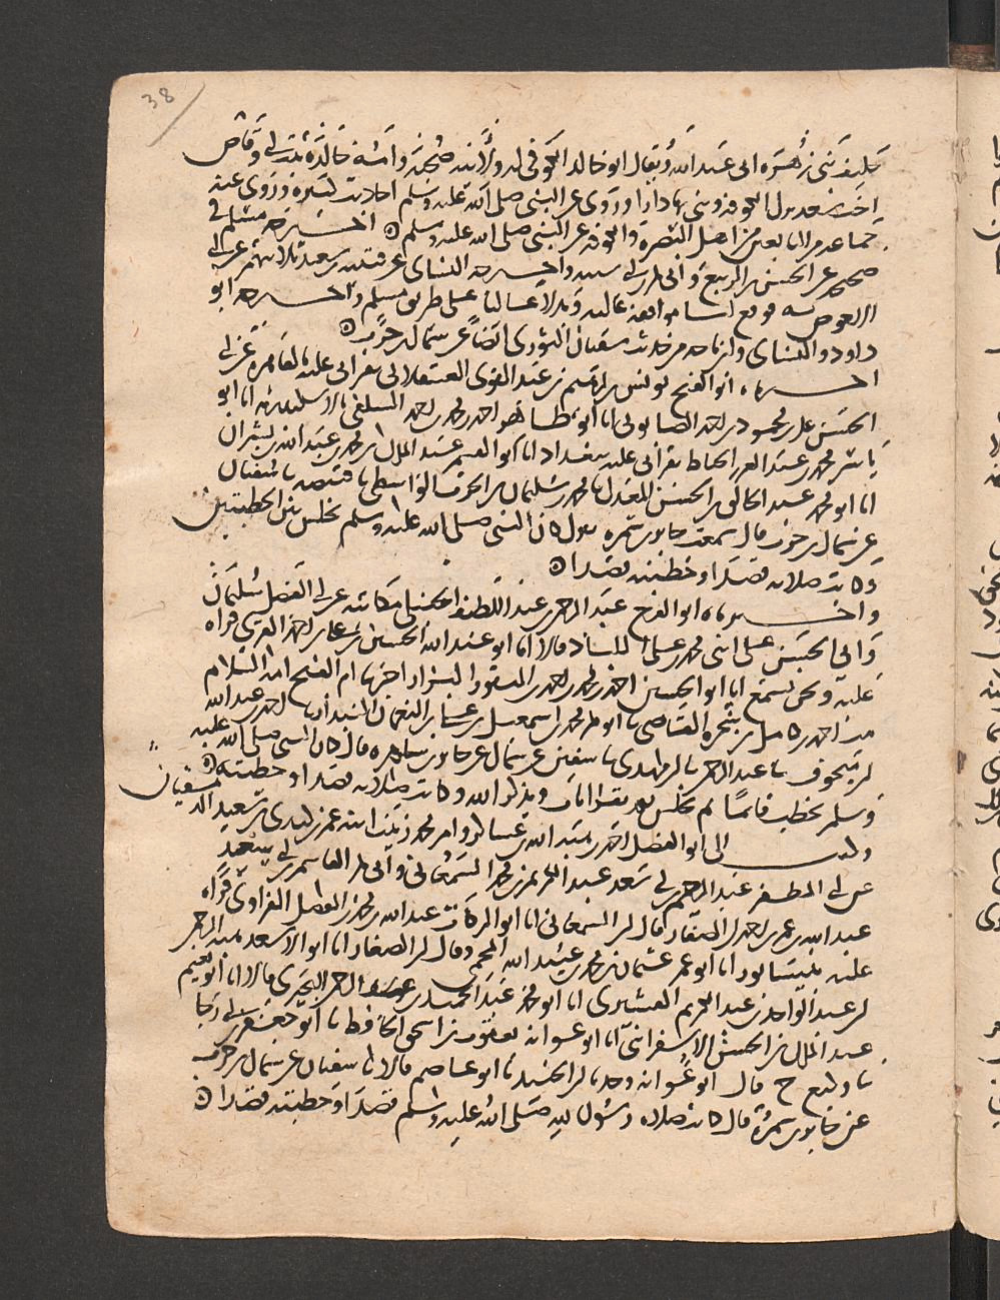 38
حليف بني زهرة ابي عبد الله ويقال ابو خالد الكوفي له ولابيه صحبة وامه خالدة بنت ابي وقاص
اخت سعد نزل الكوفة وبنى بها دارا وروى عن النبي صلى الله عليه وسلم احاديث كثيرة وروى عنه
جماعة من التابعين من اهل البصرة والكوفة عن النبي صلى الله عليه وسلم اخرجه مسلم في
صحيحه عن الحسن بن الربيع وابي بكر بن ابي شيبة واخرجه النسائي عن قتيبة بن سعيد ثلاثتهم عن ابي
الاحوص به فوقع لنا موافقة عالية وبدلا عاليا على طريق مسلم واخرجه ابو
داود والنسائي وابن ماجه من حديث سفيان الثوري ايضا عن سماك بن حرب
اخبرناه ابو الفتح يونس بن ابراهيم بن عبد القوي العسقلاني بقراتي عليه بالقاهرة عن ابي
الحسن علي بن محمود بن احمد الصابوني انا ابو طاهر احمد بن محمد بن احمد السلفي بالاسكندرية انا ابو
ياسر محمد بن عبد العزيز الخياط بقراتي عليه ببغداد انا ابو القسم عبد الملك بن محمد بن عبد الله بن بشران
انا ابو محمد عبد الخالق بن الحسن المعدل نا محمد بن سليمان بن الحرث الواسطي نا قبيصة نا سفيان
عن سماك بن حرب قال سمعت جابر بن سمرة يقول كان النبي صلى الله عليه وسلم يجلس بين الخطبتين
وكانت صلاته قصدا وخطبته قصدا
واخبرناه ابو الفرج عبد الرحمن بن عبد اللطيف الحنبلي مكاتبة عن ابي الفضل سليمان
وابي الحسن علي ابني محمد بن علي قالا انا ابو عبد الله الحسين بن علي بن احمد قراه
عليه ونحن نسمع انا ابو الحسين احمد بن محمد بن احمد بن النقور البزار اخبرتنا ام الفتح امة السلام
بنت احمد بن كامل بن شجرة القاضي نا ابو بكر محمد بن اسمعيل بن علي البندار نا احمد بن عبد الله
بن منجوف نا عبد الرحمن بن مهدي نا سفين عن سماك عن جابر بن سمرة قال كان النبي صلى الله عليه
وسلم يخطب قائما ثم يجلس ثم يقرا ايات ويذكر الله وكانت صلاته قصدا وخطبته
وكتب الي ابو الفضل احمد بن هبة الله بن عساكر وام محمد زينب ابنة عمر بن كندي بن سعيد
عن ابي المظفر عبد الرحيم بن ابي سعد عبد الكريم بن محمد السمعاني وابي بكر القاسم بن ابي سعد
عبد الله بن عمر بن احمد بن الصفار قال ابن السمعاني انا ابو البركات عبد الله بن محمد بن الفضل الفراوي قراه
عليه بنيسابور انا ابو عمر عثمان بن محمد بن عبيد الله المحمي وقال ابن الصفار انا ابو الاسعد هبة الرحمن
بن عبد الواحد بن عبد الكريم القشيري انا ابو محمد عبد الحميد بن عبد الرحمن البحيري قالا انا ابو نعيم
عبد الملك بن الحسن الاسفرائني انا ابو عوانة يعقوب بن اسحق الحافظ نا ابو جعفر بن ابي رجا
نا وكيع ح قال ابو عوانة وحدثنا ابن الجنيد نا ابو عاصم قالا نا سفيان عن سماك بن حرب
عن جابر بن سمرة قال كانت صلاة رسول الله صلى الله عليه وسلم قصدا وخطبته قصدا